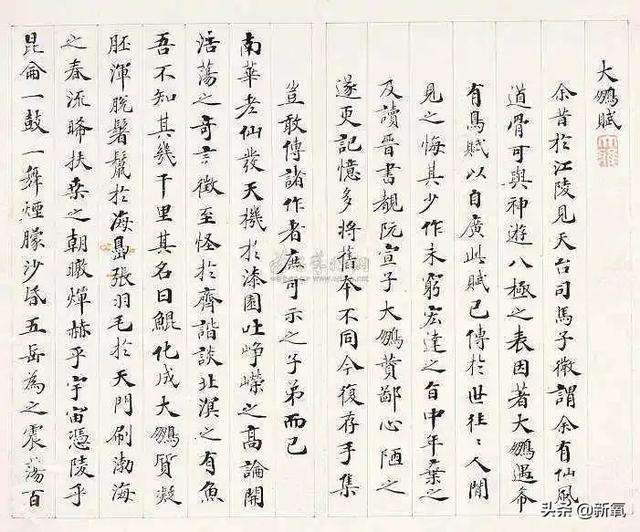 大鵬賦
余昔於江陵見天台司馬子微謂余有仙風
道骨可與神遊八極之表因著大鵬遇希
有鳥賦以自廣此賦已傳於世往〻人間
見之悔其少作未窮宏達之旨中年棄之
及讀晉書覩阮宣子大鵬賛鄙心陋之
遂更記憶多將舊本不同今復存手集
豈敢傳諸作者庶可示之子弟而已
南華老仙發天機於漆園吐崢嶸之高論開
浩蕩之奇言徵至怪於齊諧談北溟之有魚
吾不知其幾千里其名曰鯤化成大鵬質凝
胚渾脫鬐鬣於海島張羽毛於天門刷渤海
之春流晞扶桑之朝暾燀赫乎宇宙憑陵乎
昆侖一鼓一舞煙朦沙昏五岳為之震蕩百
头条 @新氧